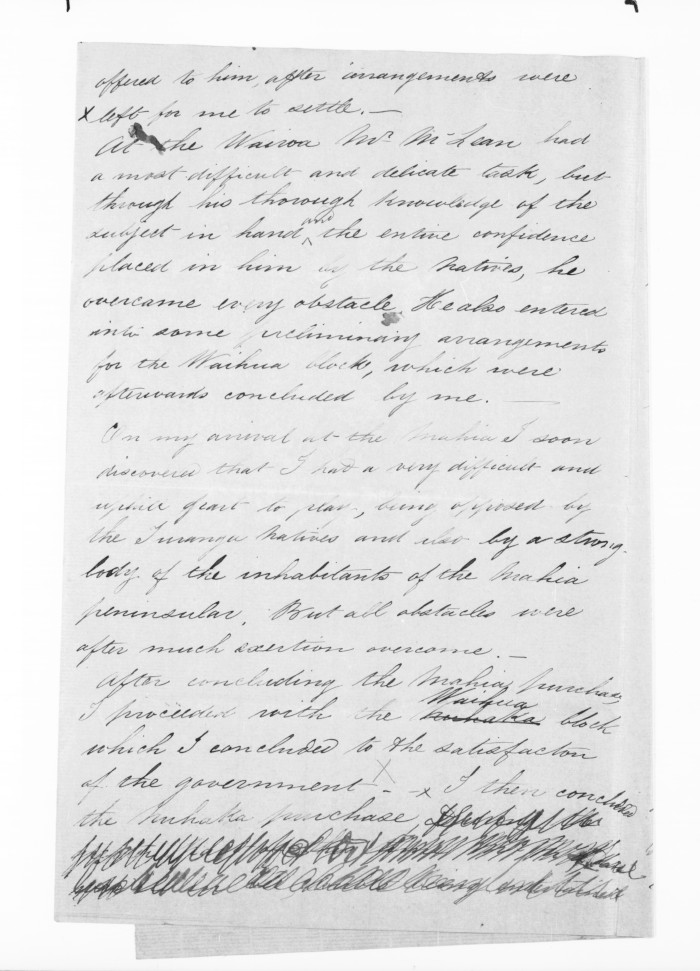 offered to him, after arrangements were
x left for me to settle. —
At the Wairoa Mr McLean had
a most difficult and delicate task, but
through his thorough knowledge of the
subject in hand and the entire confidence
placed in him by the Natives, he
overcame every obstacle. He also entered
into some preliminary arrangements
for the Waihua block, which were
afterwards concluded by me. —
On my arrival at the Mahia I soon
discovered that I had a very difficult and
uphill part to play, being opposed by
the Turanga Natives and also by a strong
body of the inhabitants of the Mahia
peninsular. But all obstacles were
after much exertion overcome. —
After concluding the Mahia purchase
I proceeded with the Waihua nuhaka block
which I concluded to the satisfacton
of the government - x x I then concluded
the Nuhaka purchase